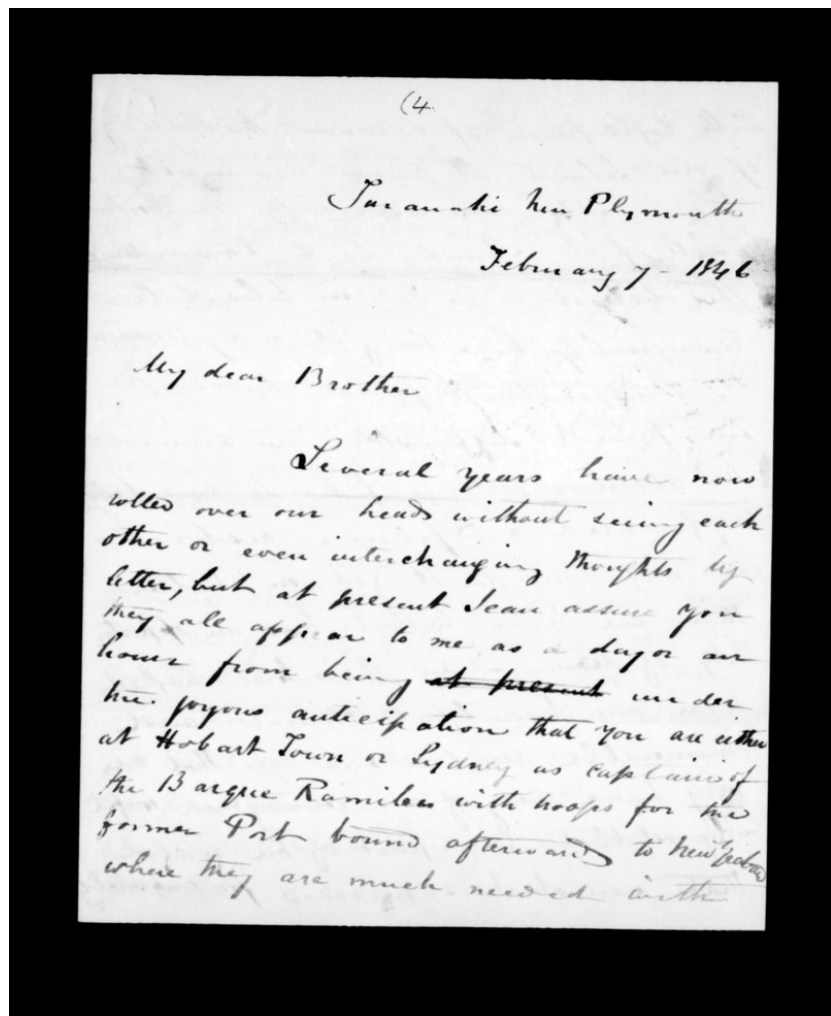 (4
Taranaki New Plymouth
February 7 - 1846
My dear Brother
Several years have now
rolled over our heads without seeing each
other or even interchanging thoughts by
letter, but at present I can assure you
they all appear to me as a day or an
hour from being at present under
the joyous anticipation that you are either
at Hobart Town or Sydney as captain of
the Barque Ramilies with troops for the
former Port bound afterwards to New Zealand
where they are much needed in the